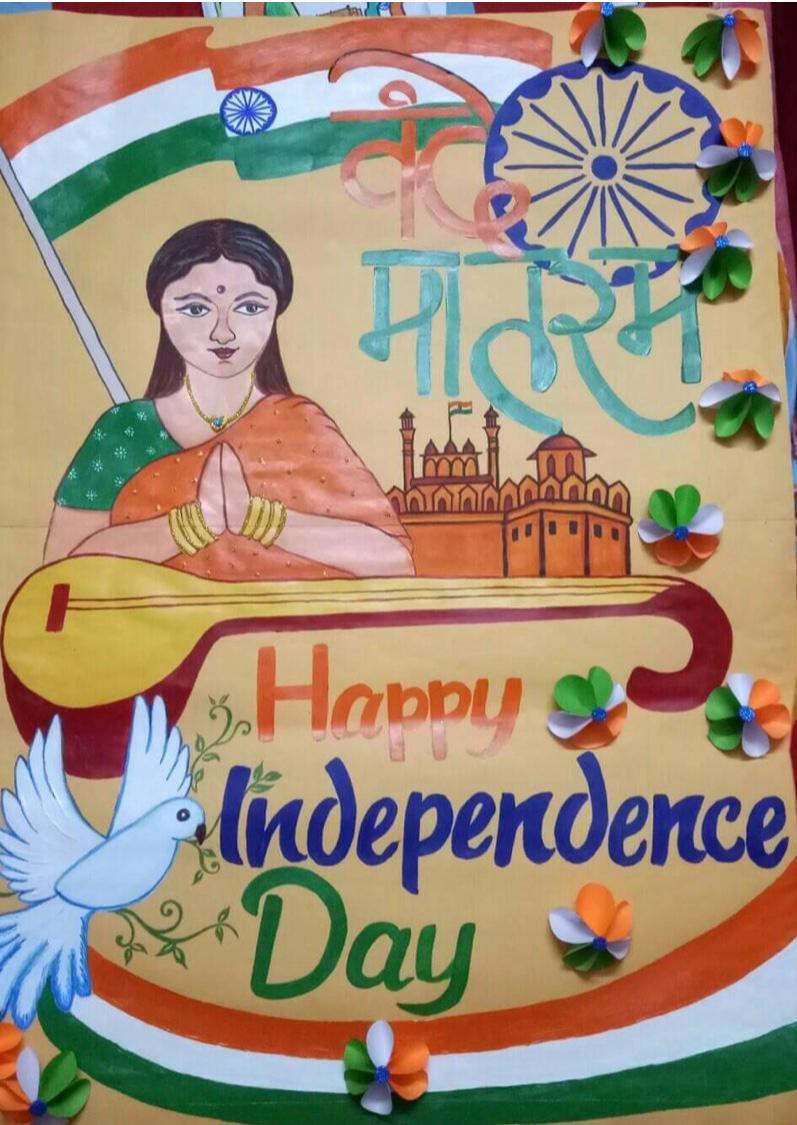 वंदे
मातरम
Happy
Independence
Day